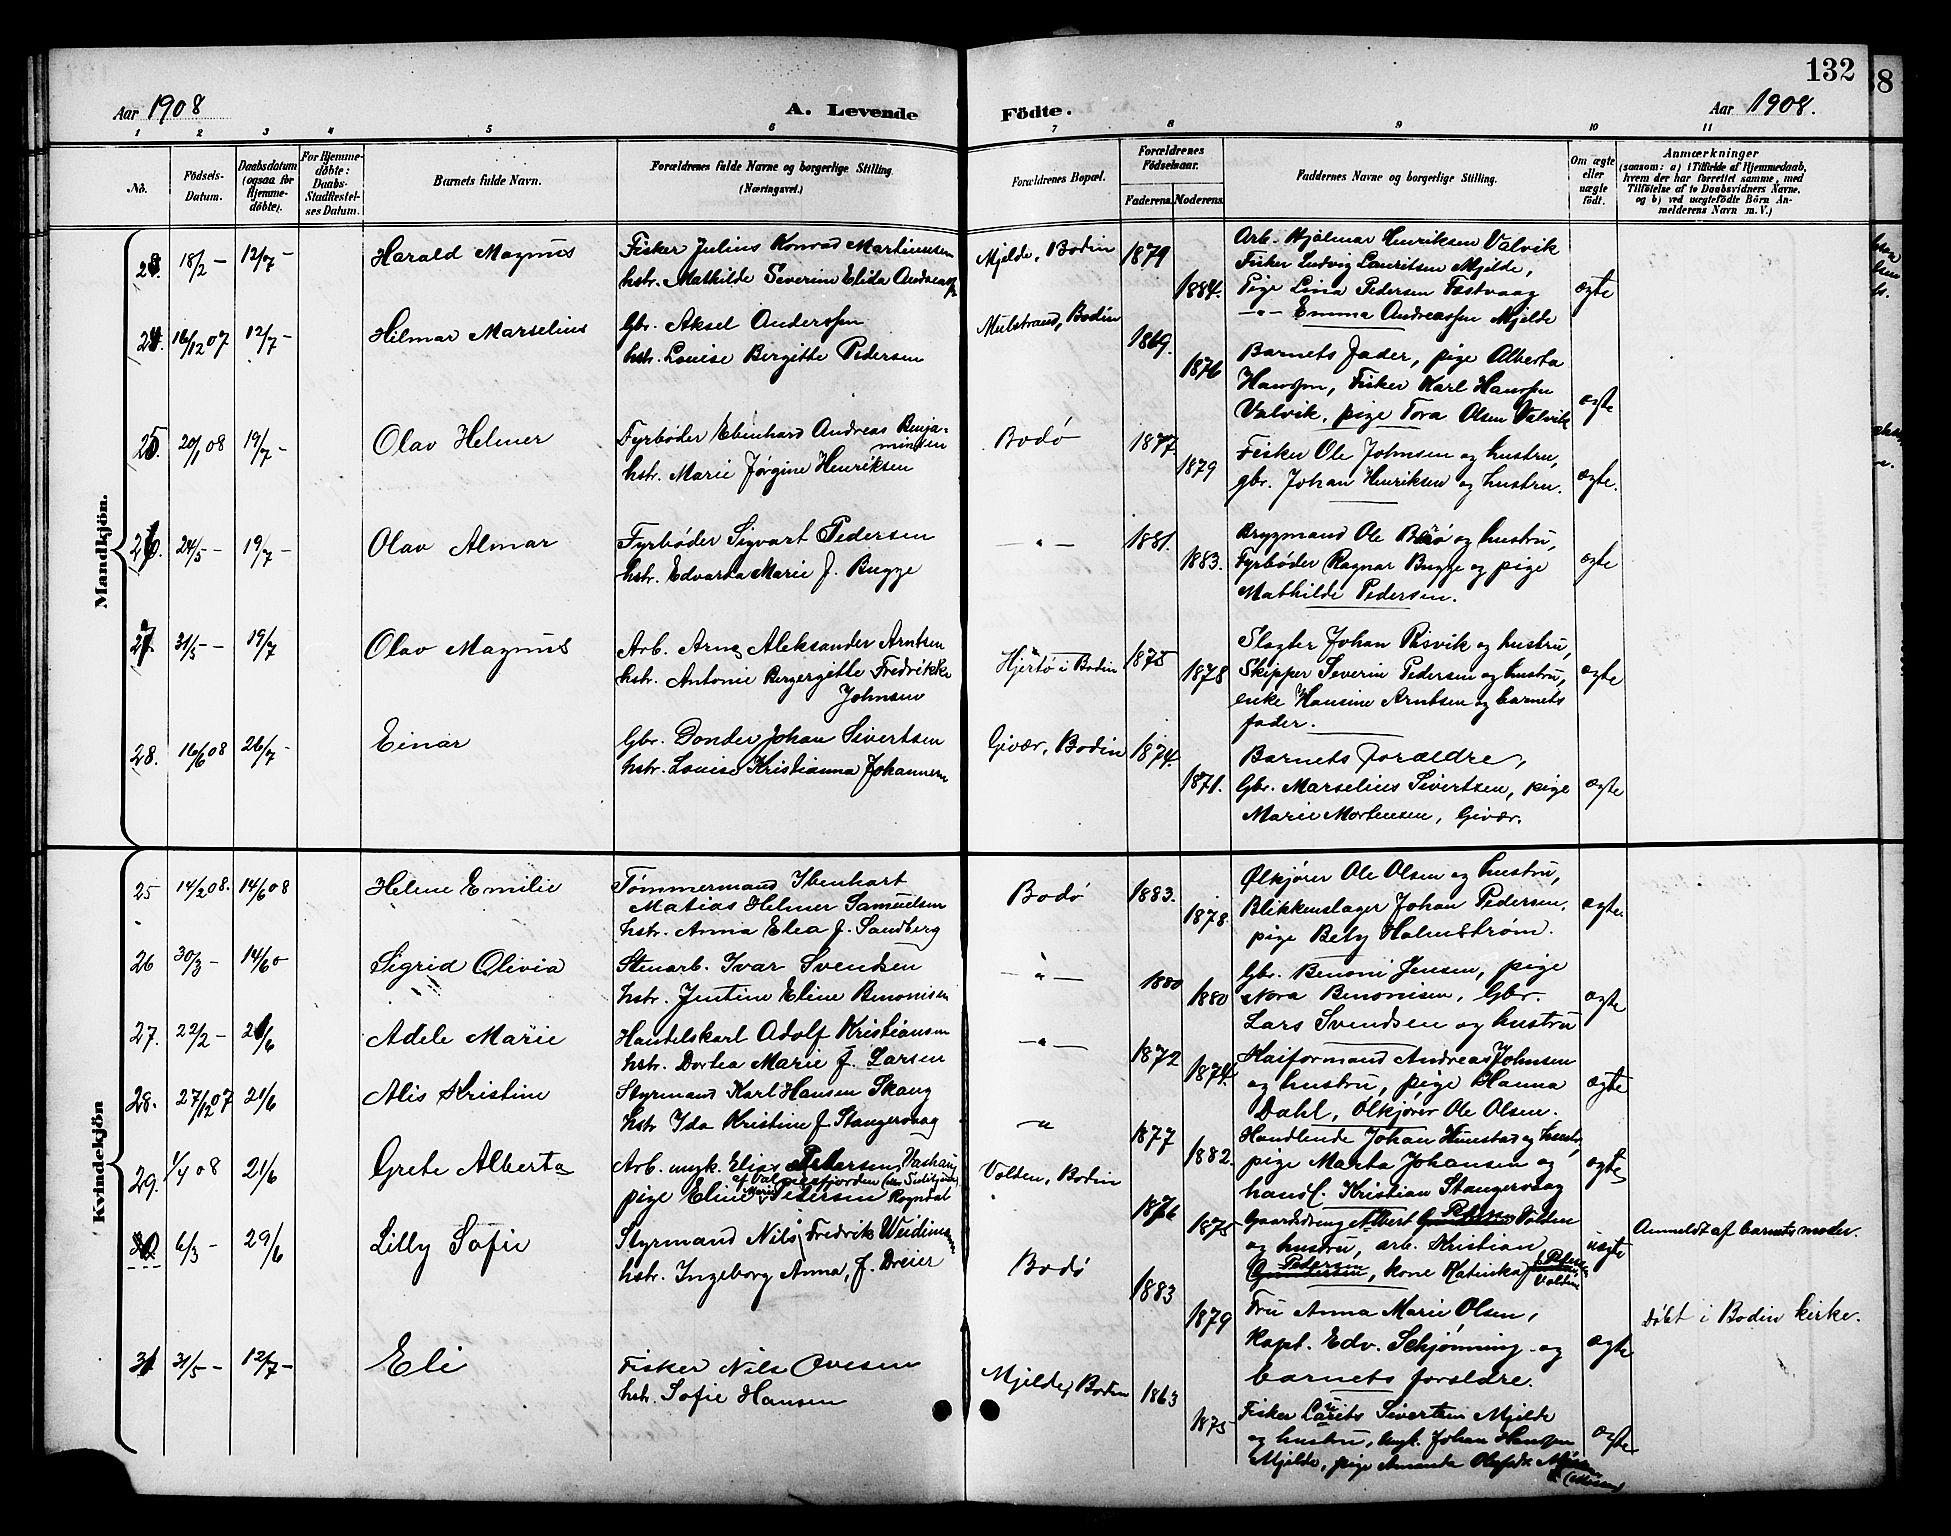 132
Aar 1908
A. Levende Födte.
Aar 1908.
1 2 3 4 5 6 7 8 9 10 11
No.
Födsels-Datum.
Daabsdatum (ogsaa for Hjemmedöbte).
For Hjemmedöbte: Daabs-Stadfæstelses Datum.
Barnets fulde Navn.
Forældrenes fulde Navne og borgerlige Stilling. (Næringsvei.)
Forældrenes Bopæl.
Forældrenes Födselsaar.
Faderens. Moderens.
Faddernes Navne og borgerlige Stilling.
Om ægte eller uægte födt.
Anmærkninger
(saasom: a) i Tilfælde af Hjemmedaab, hvem der har forrettet samme, med Tilföielse af to Daabsvidners Navne, og b) ved uægtefödte Börn Anmelderens Navn m. V.)
Mandkjön.
18/2 - 12/7 - Harald Magnus
Fisker Julius Konrad Martinussen
hstr. Mathilde Severine Elida Andreassen
Mjelde, Bodin 1879 1884.
Arb. Hjalmar Henriksen Valvik
Fisker Ludvig Lauritsen Mjelde,
Pige Lina Pedersen Fastvaag
-"- Emma Andreassen Mjelde
ægte
24. 16/12 07 12/7 - Hilmar Marselius
Gbr. Aksel Anderssen
hstr. Louise Bergitte Pedersen
Mulstrand, Bodin 1869. 1876
Barnets Fader, pige Alberta
Hanssen, Fisker Karl Hanssen
Valvik, pige Tora Olsen Valvik
ægte
25. 20/1 08 19/7 - Olav Helmer
Fyrbøder Ebenhard Andreas Benja-
minsen
hstr. Marie Jørgine Henriksen
Bodø 1877 1879
Fisker Ole Johnsen og hustru,
gbr. Johan Henriksen og hustru.
ægte.
26. 24/5 - 19/7 - Olav Almar
Fyrbøder Sigvart Pedersen
hstr. Edvarda Marie f. Bugge
-"- 1881. 1883.
Brygmand Ole og hustru,
Fyrbøder Ragnar Bugge og pige
Mathilde Pedersen.
ægte
27. 31/5 - 19/7 Olav Magnus
Arb. Arne Aleksander Arntsen
hstr. Antonie Bergergitte Fredrikke
Johnsen
Hjertø i Bodin 1875 1878
Slagter Johan Røsvik og hustru,
Skipper Severin Pedersen og hustru,
enke Hansine Arntsen og barnets
fader.
ægte
28. 16/6 08 26/7 - Einar
Gbr. Donder Johan Sivertsen
hstr. Louise Kristianna Johannesen
Givær, Bodin 1874. 1871.
Barnets forældre,
Gbr. Marselius Sivertsen, pige
Marie Mortensen, Givær.
ægte
Kvindekjön
25 14/2 08. 14/6 08 Helene Emilie
Tømmermand Ibenhart
Matias Helmer Samuelsen
hstr. Anna Elea f. Sandberg
Bodø 1883. 1878.
Ølkjører Ole Olsen og hustru,
Blikkenslager Johan Pedersen,
pige Bety Holmstrøm.
ægte.
26 30/3 - 14/6 Sigrid Olivia
Stenarb. Ivar Svendsen
hstr. Justine Eline Benonisen
-"- 1880 1880
Gbr. Benoni Jensen, pige
Nora Benonisen, Gbr.
Lars Svendsen og hustru
ægte
27. 22/2 - 21/6 Adele Marie
Handelskarl Adolf Kristiansen
hstr. Dortea Marie f. Larsen
-"- 1872 1874.
Kaiformand Andreas Johnsen
og hustru, pige Hanna
Dahl, Ølkjører Ole Olsen.
ægte
28. 27/12 07 21/6 Alis Kristine
Styrmand Karl Hansen Skaug
hstr Ida Kristine f. Stangervaag
" 1877 1882.
Handlende Johan Hunstad og hustru,
pige Marta Johansen og
handl. Kristian Stangervaag
ægte
29. 1/4 08 21/6 Grete Alberta
Arb. ungk. Elias Pedersen
af Valnesfjorden
pige Eline Marie Petersen Rogndal
Volden, Bodin 1876 1875
Gaardsdreng Albert Petersen Volden
og hustru, arb. Kristian
Pedersen, kone Katinka
Volden
uægte
Anmeldt af barnets moder.
30 6/3 - 29/6 Lilly Sofie
Styrmand Nils Fredrik
hstr. Ingeborg Anna, f. Dreier
Bodø 1883 1879
Fru Anna Marie Olsen,
Kapt. Edv. Schjønning og
barnets forældre.
ægte
Døbt i Bodin kirke.
31 31/5 - 12/7 - Eli
Fisker Nils Ovesen
hstr. Sofie Hansen
Mjelde, Bodin 1863 1875
Fisker Laurits Sivertsen Mjelde
og hustru, ungk. Johan Hanssen
Mjelde, pige Amanda
ægte